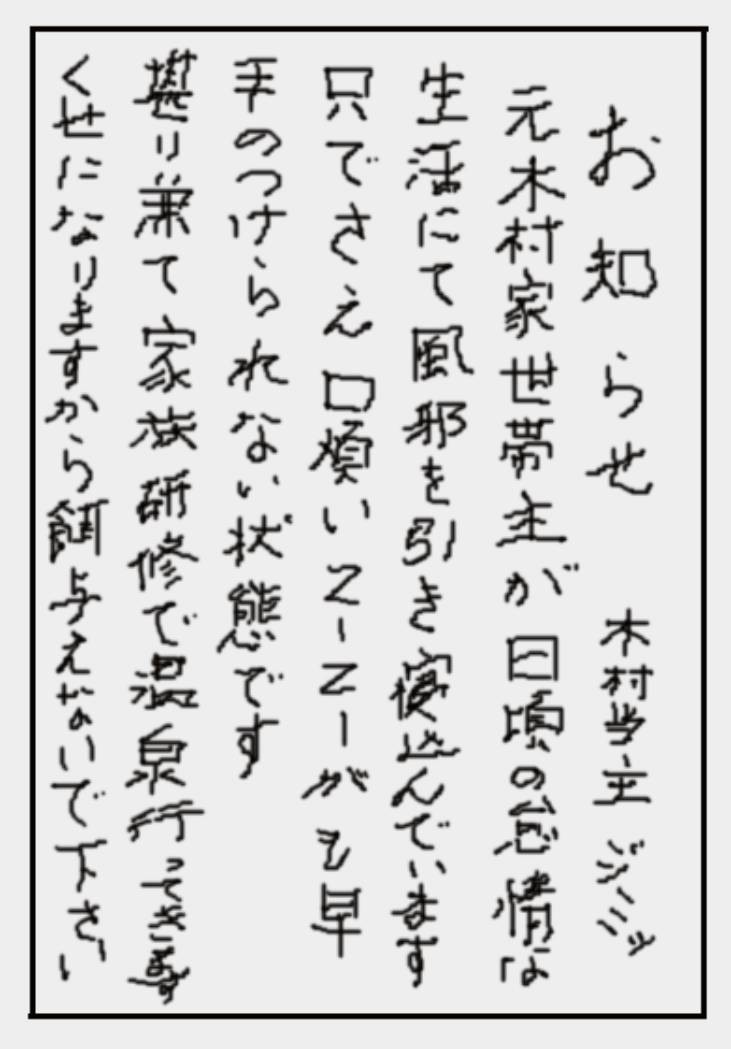 お知らせ 木村当主
元木村家世帯主が日頃の怠情な
生活にて風邪を引き寝込んでいます
只でさえ口煩いZーZーがも早
手のつけられない状態です
り兼て家族研修で温泉行ってきます
くせになりますから餌与えないで下さい